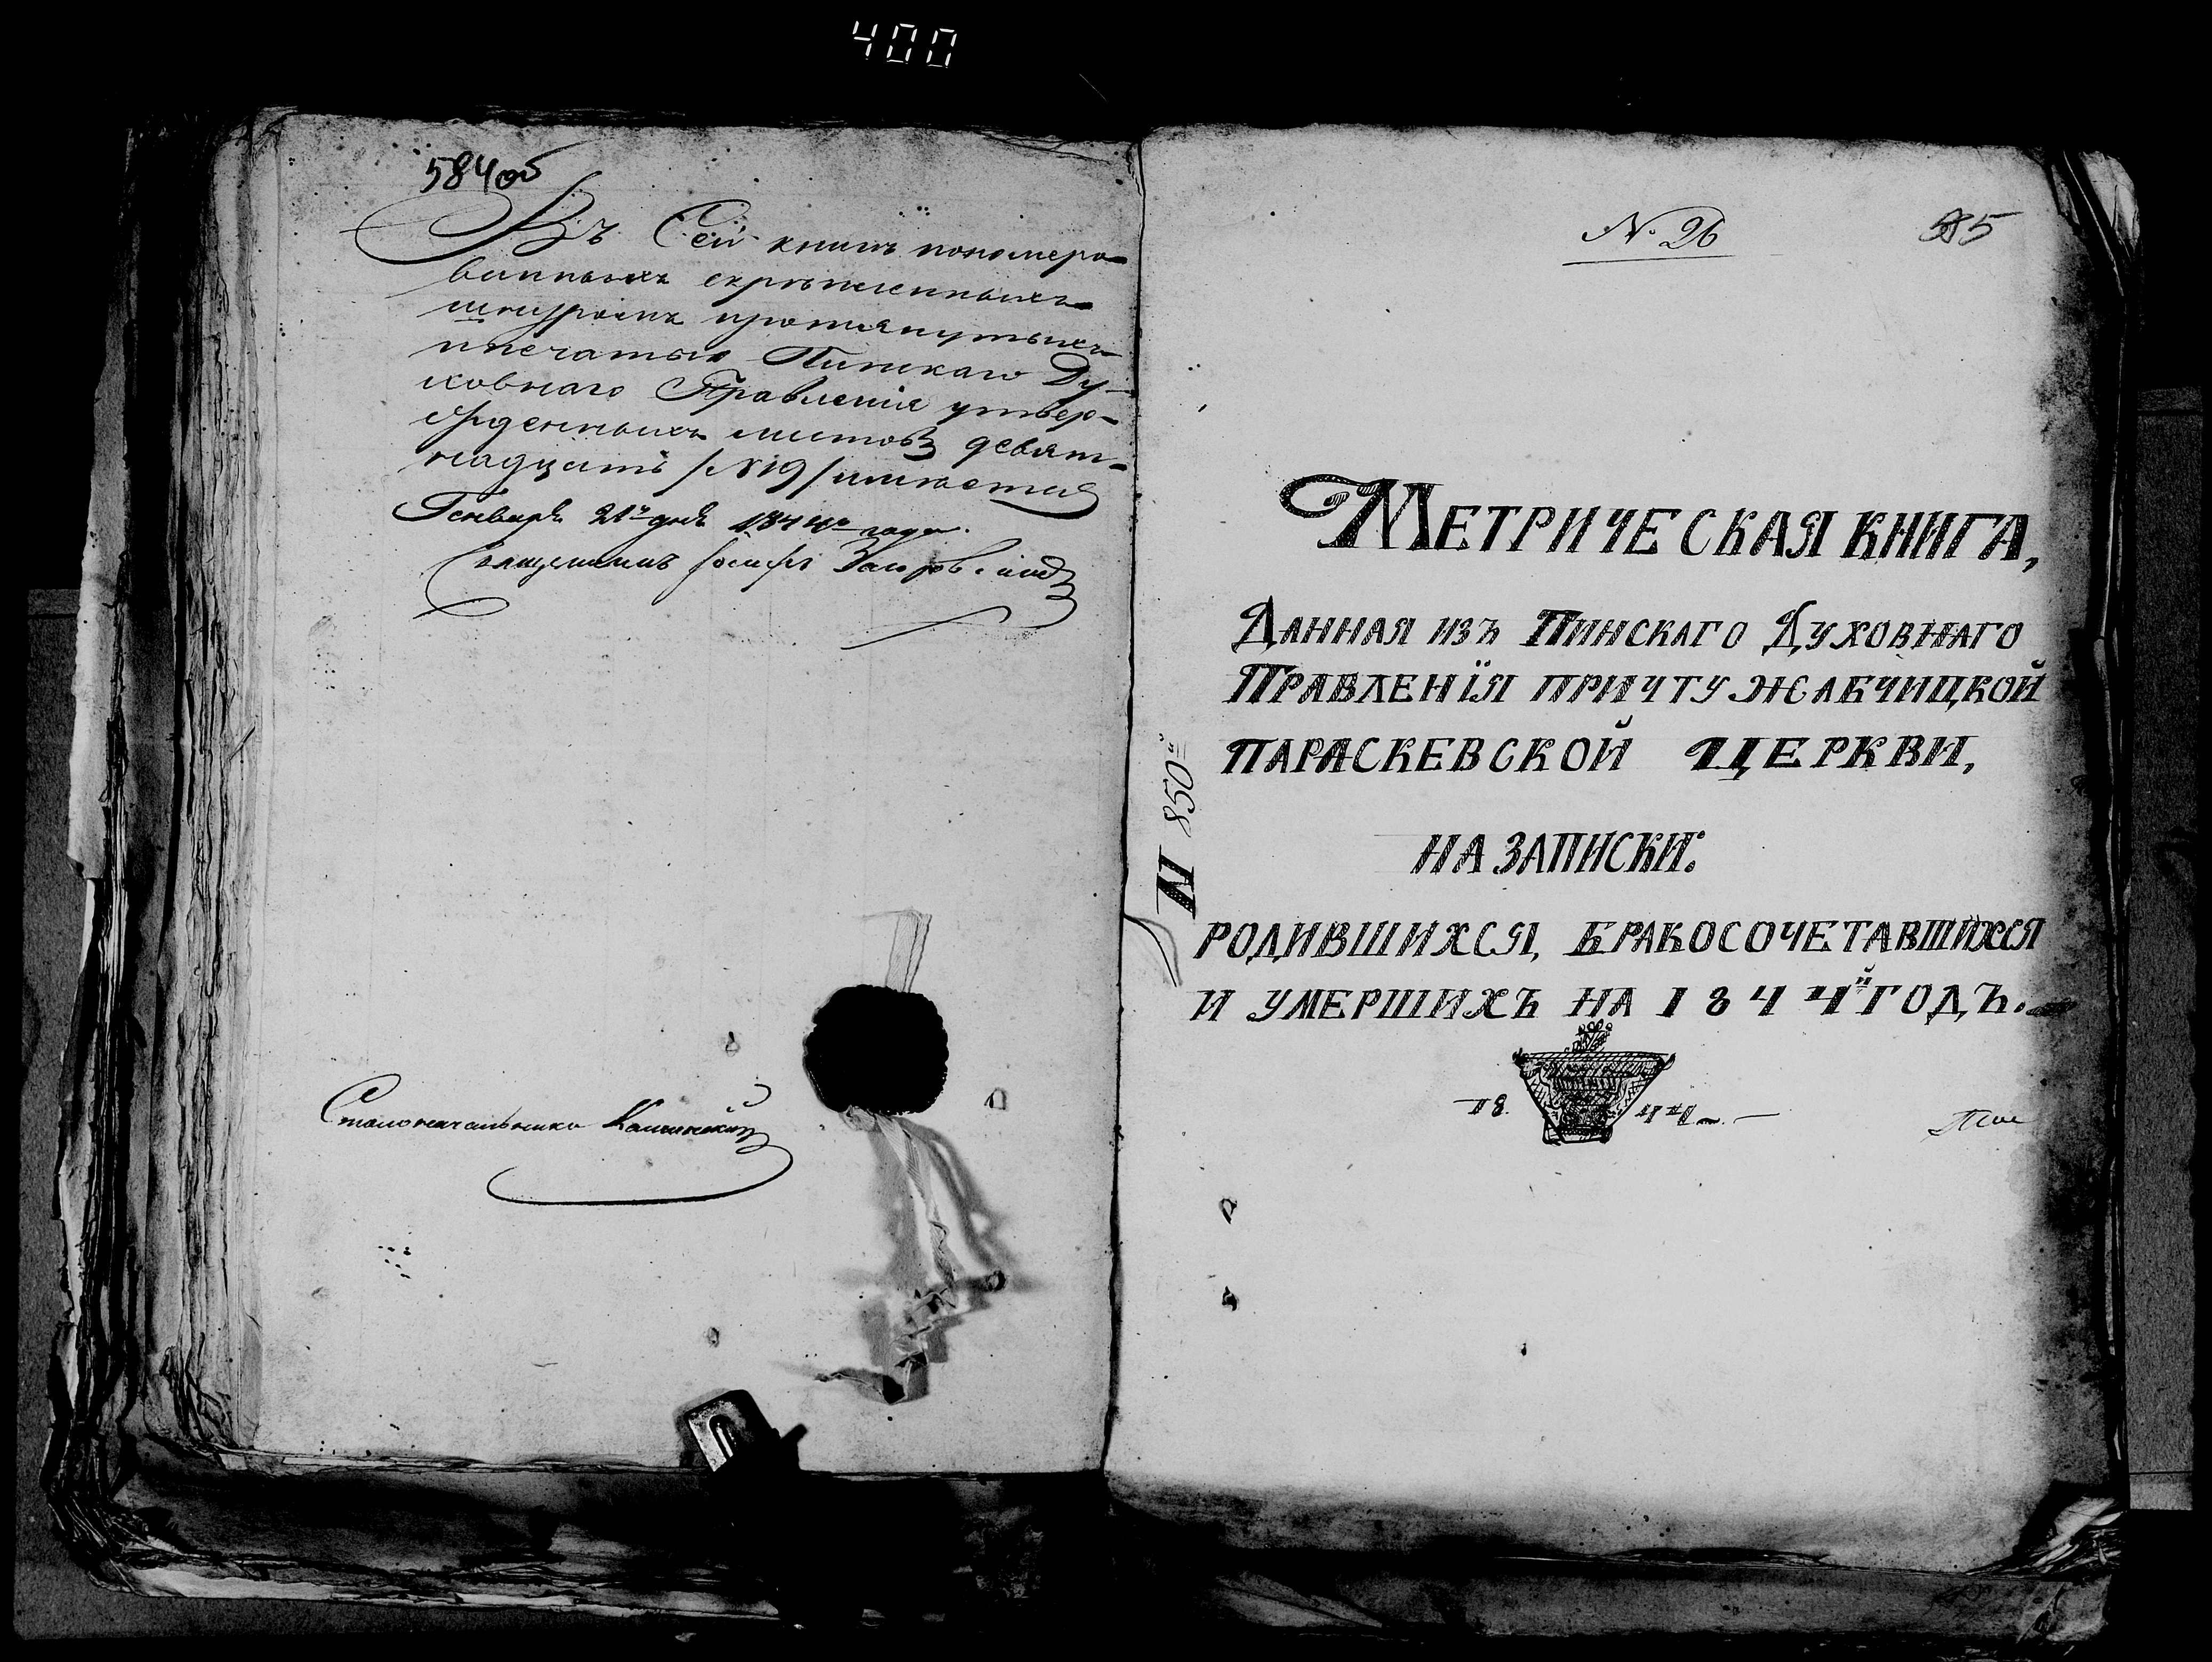 400
584об
Въ Сей книгѣ пономеро-
ванныхъ скрѣпленныхъ
шнуромъ протянутыхъ
и печатью Пинскаго Ду-
ховнаго Правленія утвер-
жденныхъ листовъ девят-
надцать /№19/ имѣется
Генваря 21го дня 1844го года.
Священникъ Іосифъ
Столоначальникъ
N. 26
585
МЕТРИЧЕСКАЯ КНИГА,
ДАННАЯ ИЗЪ ПИНСКАГО ДУХОВНАГО
ПРАВЛЕНЇЯ ПРИЧТУ ЖАБЧИЦКОЙ
ПАРАСКЕВСКОЙ ЦЕРКВИ,
НА ЗАПИСКИ:
РОДИВШИХСЯ, БРАКОСОЧЕТАВШИХСЯ
И УМЕРШИХЪ НА 1844й ГОДЪ.
18. 44
N 850й